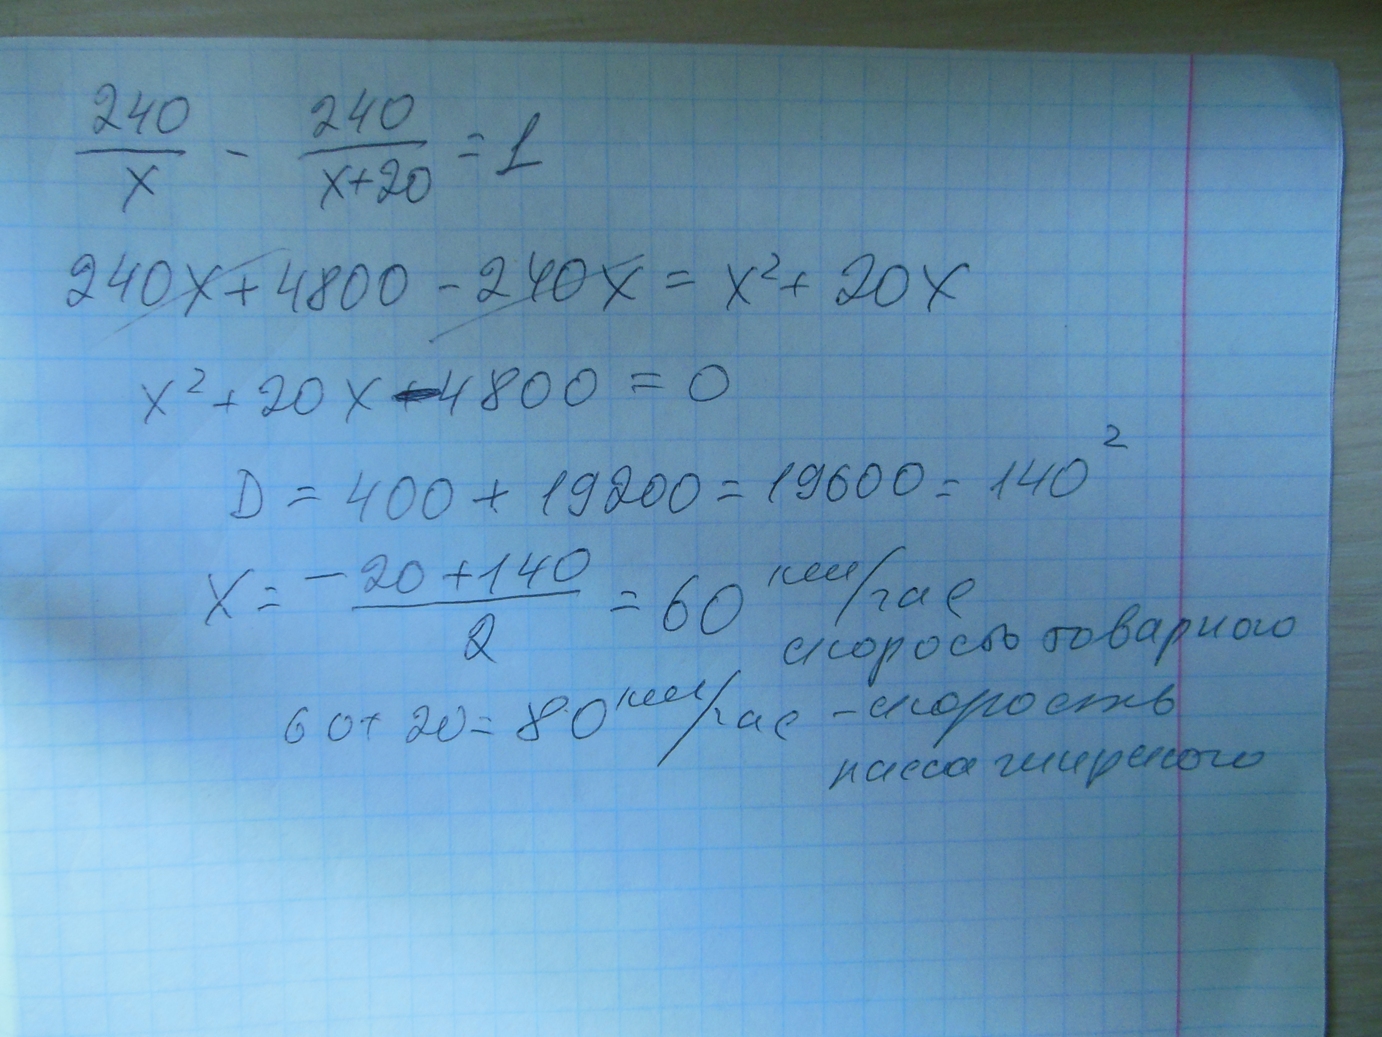 240/x - 240/(x+20) = 1
240x + 4800 - 240x = x² + 20x
x² + 20x - 4800 = 0
D = 400 + 19200 = 19600 = 140²
x = (-20 + 140)/2 = 60 км/час
скорость товарного
60 + 20 = 80 км/час - скорость
пассажирского